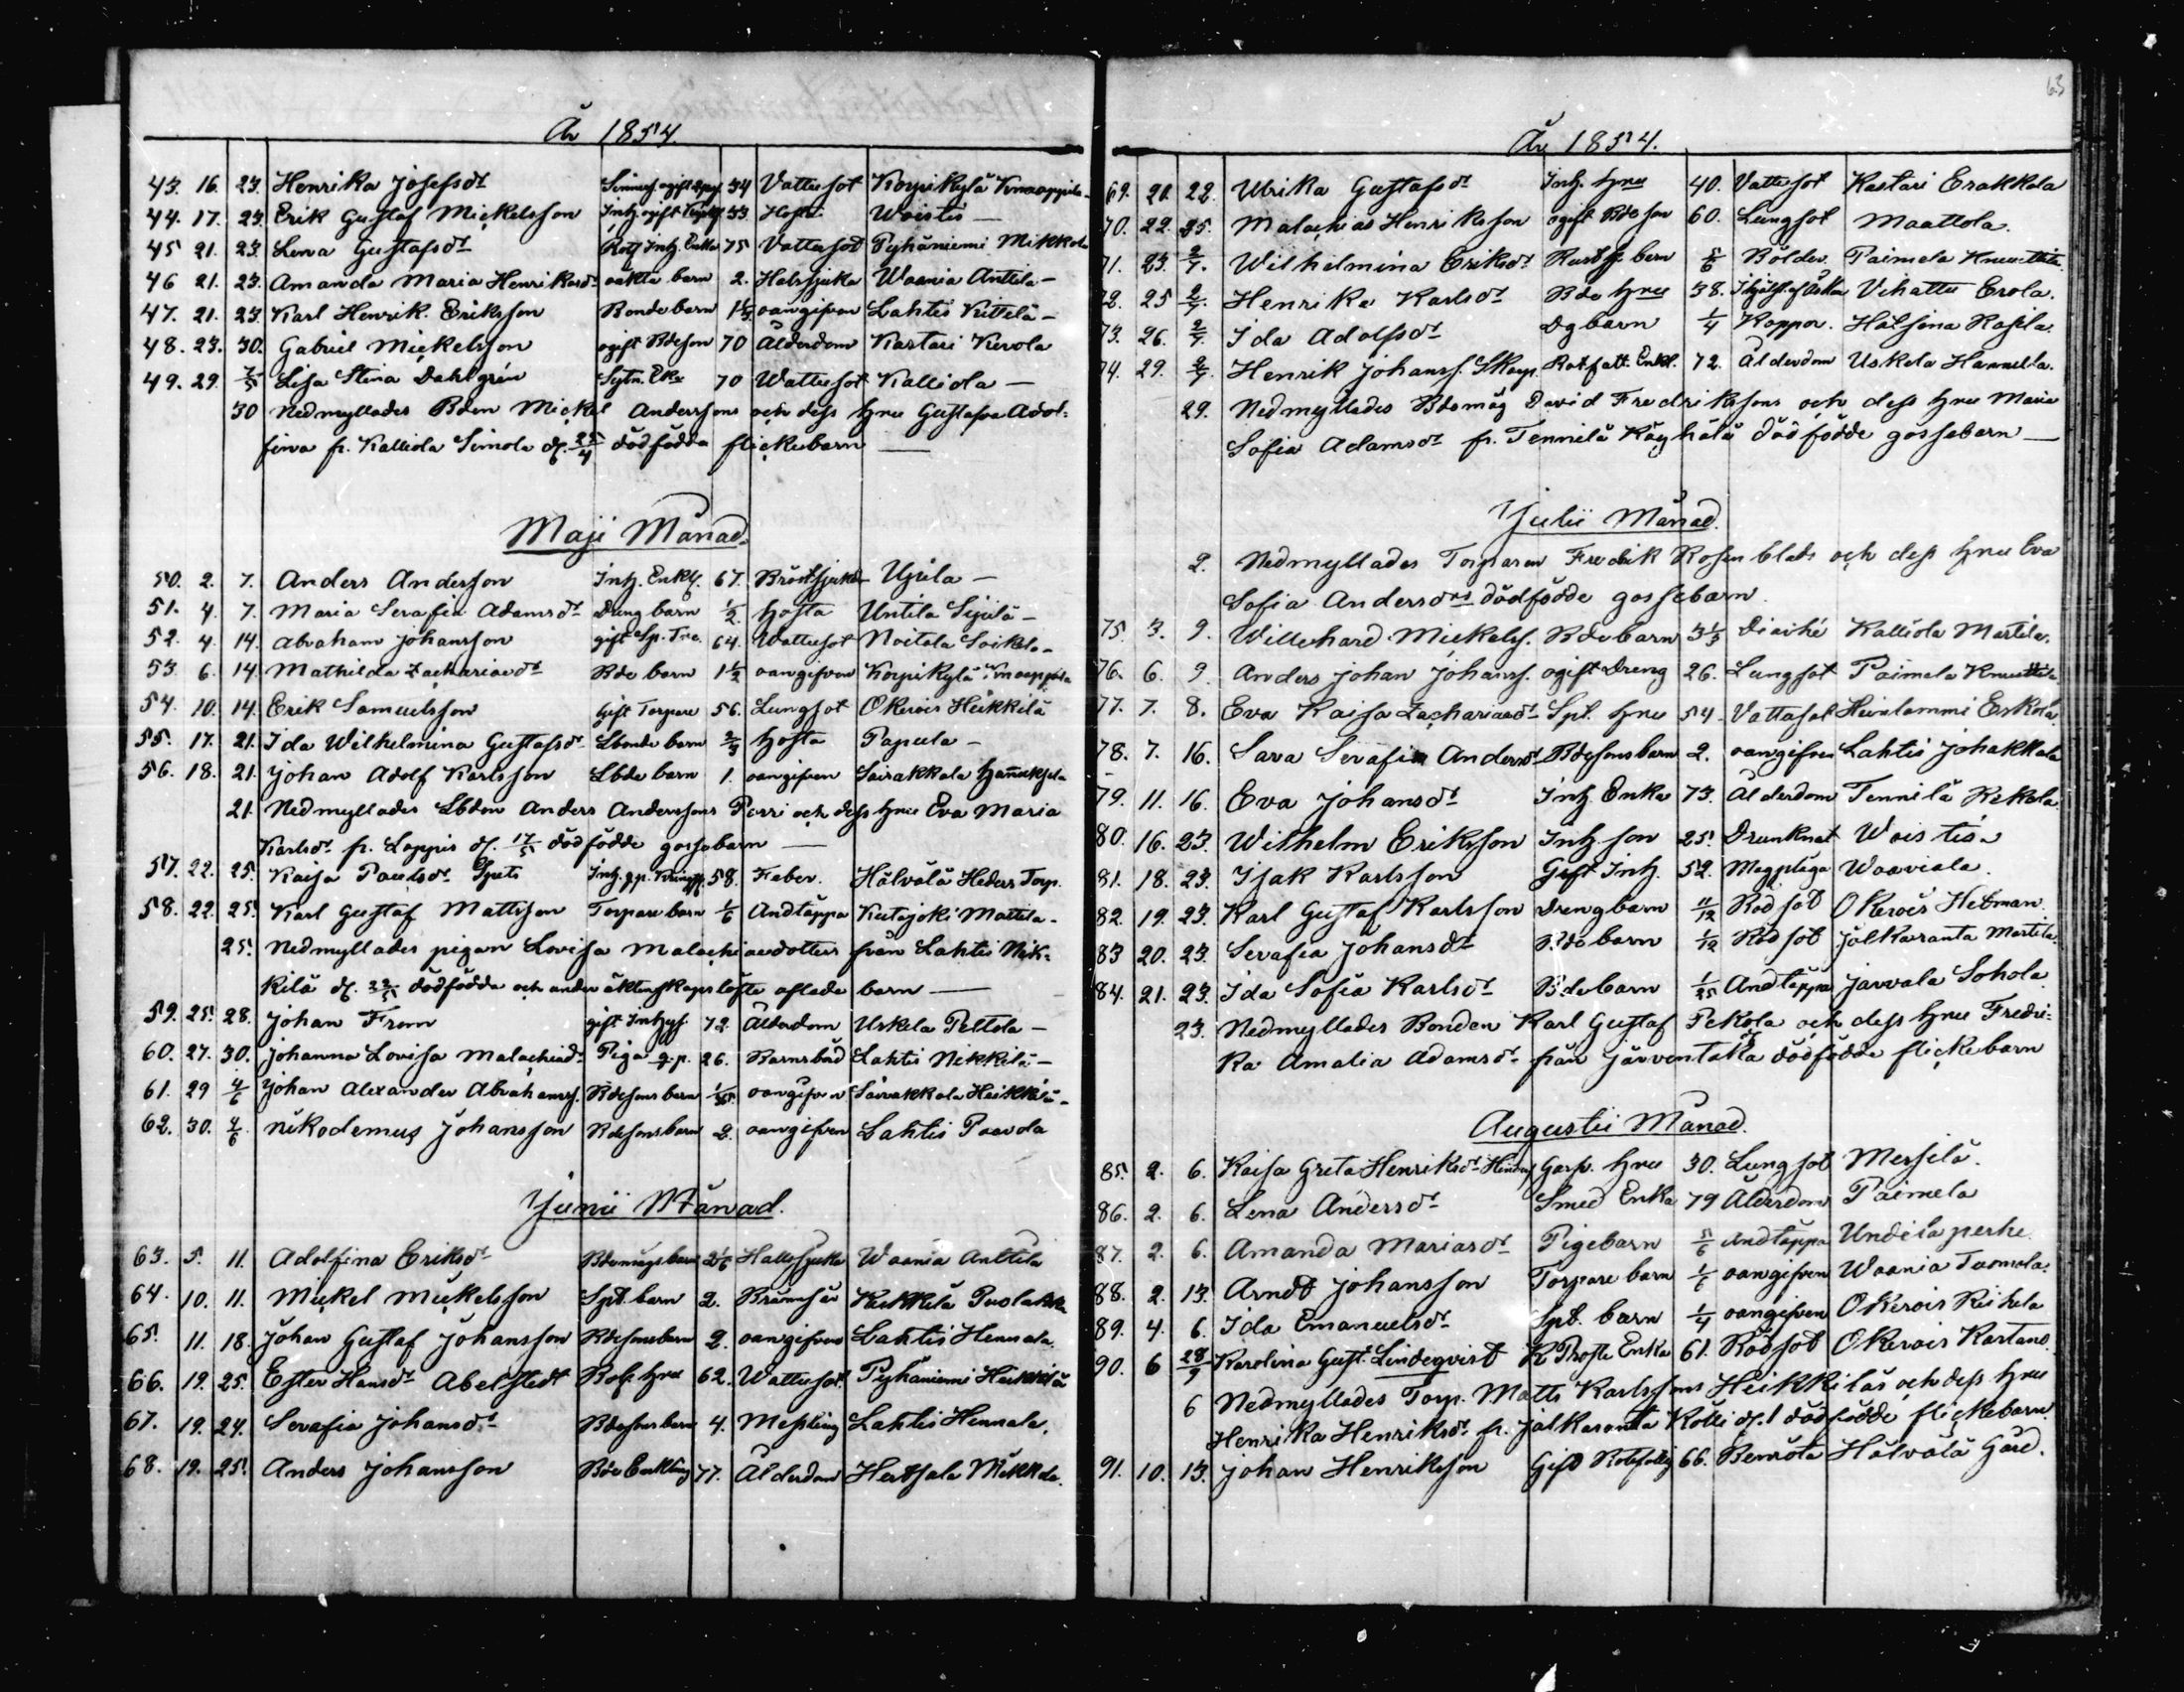 År 1854.
43. 16. 23. Henrika Josefsdr 34 Vattusot Korpikylä Knaappila
44. 17. 23. Erik Gustaf Mickelsson Inh. ogift 33. Hosta Woistis —
45 21. 23. Lena Gustafsdr Rotf Inh. Enka 75 Vattusot Pyhäniemi Mikkola
46 21. 23. Amanda Maria Henriksdr oäkta barn 2. Halssjuka Waania Anttila —
47. 21. 23. Karl Henrik Eriksson Bonde barn 1 1/3 oangifven Lahtis Kittelä —
48. 23. 30. Gabriel Mickelsson ogift Bdeson 70 Ålderdom Kastari Kerola
49. 29. 7/5 Lisa Stina Dahlgrén Sytn. Eka 70 Wattusot Kalliola —
30 Nedmyllades Bden Mickel Anderssons och dess hru Gustafva Adol-
fina fr. Kalliola Simola df. 25/4 dödfödda flickebarn —
Maji Månad.
50. 2. 7. Anders Andersson Inh. Enkl. 67. Bröstsjukd. Ujula —
51. 4. 7. Maria Serafia Adamsdr Dreng barn 1/2 hosta Untila Sipilä —
52. 4. 14. Abraham Johansson gift Sp. Tre. 64. Wattusot Noitala Soikola —
53 6. 14. Mathilda Zachariaedr Bde barn 1 1/2 oangifven Korpikylä Knaappila
54. 10. 14. Erik Samuelsson Gift Torpare 56. Lungsot Okerois Heikkilä
55. 17. 21. Ida Wilhelmina Gustafsdr Lbonde barn 2/3 hosta Papula —
56. 18. 21. Johan Adolf Karlsson Lbde barn 1. oangifven Sairakkala Hannuksela
21. Nedmyllades Lbden Anders Anderssons Perri och dess hru Eva Maria
Karlsdr fr. Loppis df. 17/5 dödfödde gossebarn —
57. 22. 25. Kaisa Paulsdr 58. Feber. Hälvälä Heders Torp.
58. 22. 25. Karl Gustaf Mattsson Torpare barn 1/6 Andtäppa Kutajoki Mattila —
25. Nedmyllades pigan Lovisa Malachiaedotters från Lahtis Nik-
kilä df. 22/5 dödfödda och under äktenskapslöfte aflade barn —
59. 25. 28. Johan From gift Inhys. 72. Ålderdom Uskila Peltola —
60. 27. 30. Johanna Lovisa Malachiædr Piga 26. Barnsbörd Lahtis Nikkilä —
61. 29 4/6 Johan Alexander Abrahamss. Bdesons barn oangifven Sairakkala Heikkilä —
62. 30. 4/6 Nikodemus Johansson Bdesons barn 2. oangifven Lahtis Paavola
Junii Månad.
63. 5. 11. Adolfina Eriksdr Bdemågs barn 2 1/6 Halssjuka Waania Anttila
64. 10. 11. Mickel Mickelsson Spt. barn 2. Brännsår Kukkila Puolakka
65. 11. 18. Johan Gustaf Johansson Bdesons barn 2. oangifven Lahtis Hennala
66. 19. 25. Ester Hansdr Abelstedt Bof. hru 62. Wattusot. Pyhäniemi Heikkilä
67. 19. 24. Serafia Johansdr Bdesons barn 4. Messling Lahtis Hennala.
68. 19. 25. Anders Johansson Bde Enkling 77. Ålderdom Hertsala Mikkola.
63
År 1854.
69. 21. 22. Ulrika Gustafsdr Inh. hru 40. Vattusot Kastari Erakkola
70. 22. 25. Malachias Henriksson ogift Bdeson 60. Lungsot Maattola.
71. 23. 2/7. Wilhelmina Eriksdr barn 5/6 Bölder. Paimela Knuuttila
72. 25 2/7. Henrika Karlsdr Bde hru 38. Ihjälsl. af Åskan Vihattu Erola.
73. 26. 2/7. Ida Adolfsdr Dg barn 1/4 Koppor. Halsina Rasila.
74. 29. 2/7. Henrik Johanss. Skarp Rotfatt. Enkl. 72. Ålderdom Uskela Hannula.
29. Nedmyllades Bdemåg David Fredrikssons och dess hru Maria
Sofia Adamsdr fr. Tennilä Käyhälä dödfödde gossebarn —
Julii Månad.
2. Nedmyllades Torparen Fredrik Rosenblads och dess hru Eva
Sofia Andersdrs dödfödde gossebarn.
75. 3. 9. Willehard Mickelss. Bde barn 3 1/3 Diarhé Kalliola Martila.
76. 6. 9. Anders Johan Johanss. ogift Dreng 26. Lungsot Paimela Knuuttila
77. 7. 8. Eva Kaisa Zachariaedr Spt. hru 54. Vattusot Heinlammi Eskola
78. 7. 16. Sara Serafia Andersdr Bdesons barn 2. oangifven Lahtis Johakkala
79. 11. 16. Eva Johansdr Inh. Enka 73. Ålderdom Tennilä Kekola
80. 16. 23. Wilhelm Eriksson Inh. son 25. Drunknat Woistis
81. 18. 23. Isak Karlsson Gift Inh. 52. Magplåga Waaviala.
82. 19. 23. Karl Gustaf Karlsson Drengbarn 11/12 Rödsot Okerois Hetman.
83 20. 23. Serafia Johansdr Bde barn 1/12 Rödsot Jalkaranta Martila.
84. 21. 23. Ida Sofia Karlsdr Bde barn 1/25 Andtäppa Jarvala Sohola
23. Nedmyllades Bonden Karl Gustaf Pekola och dess hru Fredri-
ka Amalia Adamsdr från Järventaka dödfödde flickebarn
Augustii Månad.
85. 2. 6. Kaisa Greta Henriksdr Garf. hru 30. Lungsot Messilä.
86. 2. 6. Lena Andersdr Smed Enka 79 Ålderdom Paimela
87. 2. 6. Amanda Mariasdr Pigebarn 5/6 Andtäppa Undilaperhe.
88. 2. 13. Arndt Johansson Torpare barn 1/6 oangifven Waania Tuomola.
89. 4. 6. Ida Emanuelsdr Spt. barn 1/4 oangifven Okerois Reikela
90. 6 28/9 Karolina Gust. Lindeqvist Enka 61. Rödsot Okerois Kartano
6 Nedmyllades Torp. Matts Karlssons Heikkiläs och dess hru
Henrika Henriksdr fr. Jalkaranta Kolli df. 1 dödfödde flickebarn.
91. 10. 13. Johan Henriksson Gift Rotefattig 66. Benröta Hälvälä Gård.